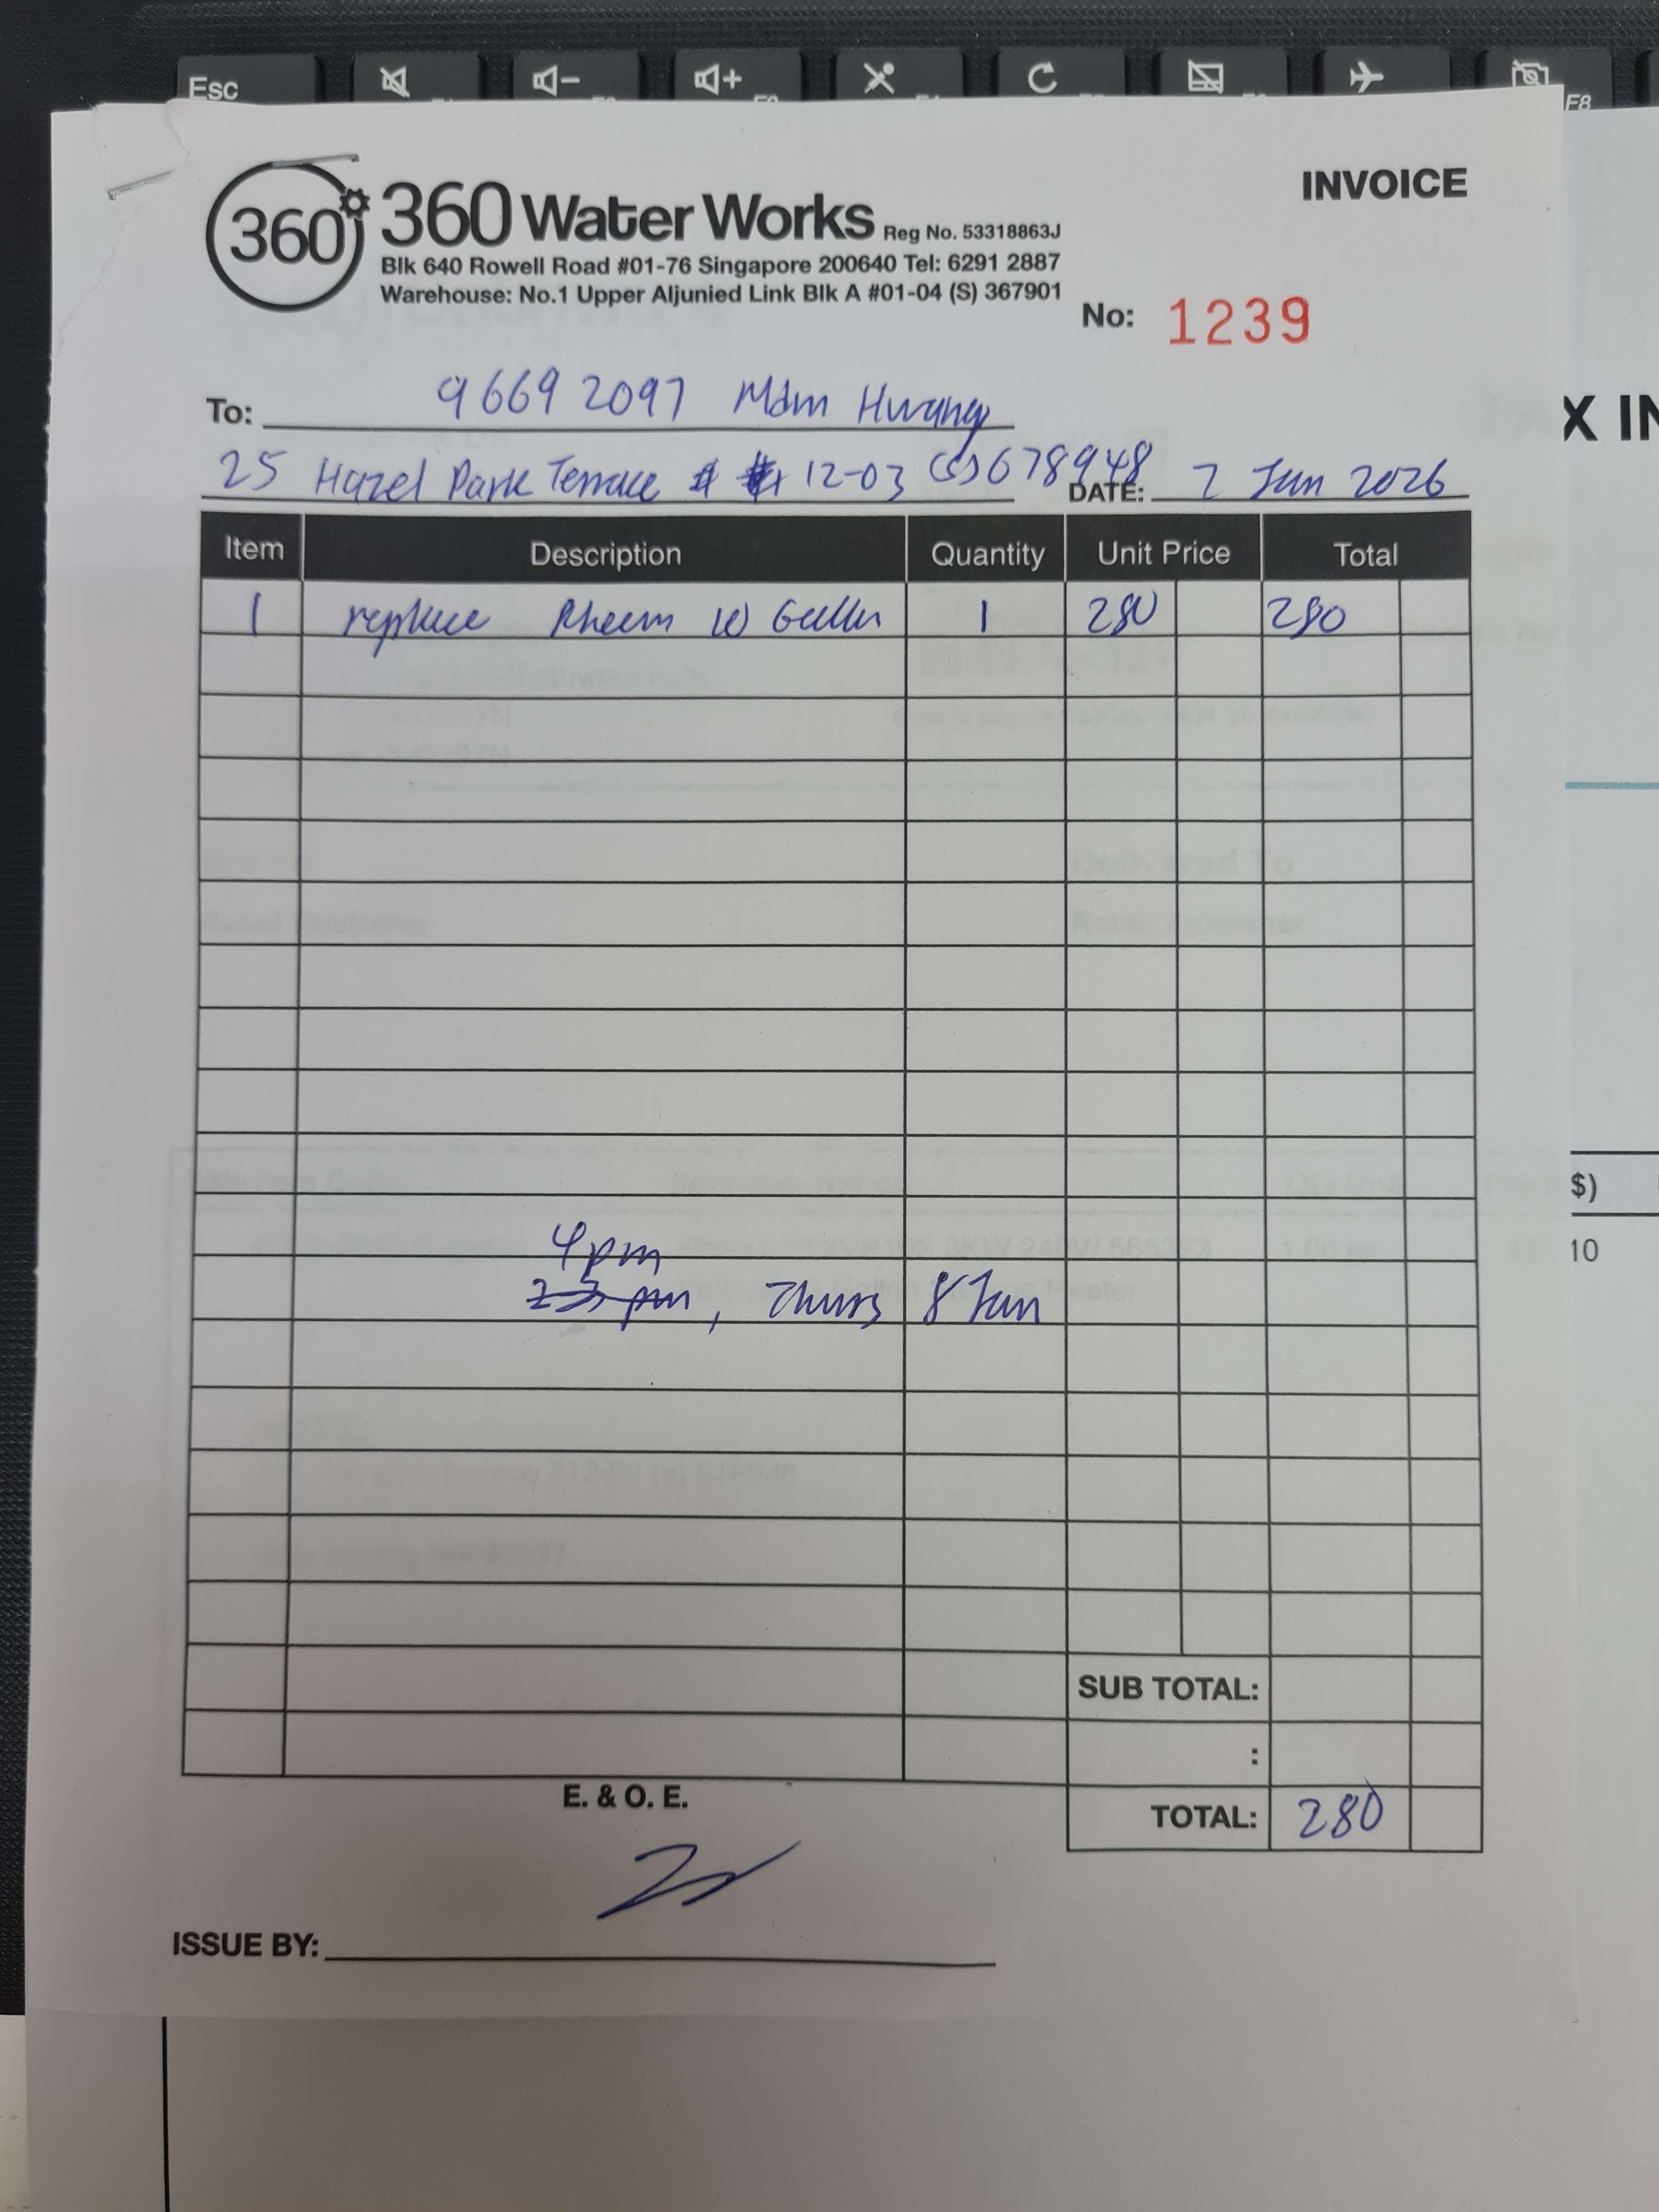 Esc
F8
360
360 Water Works Reg No. 53318863J
INVOICE
Blk 640 Rowell Road #01-76 Singapore 200640 Tel: 6291 2887
Warehouse: No.1 Upper Aljunied Link Blk A #01-04 (S) 367901
No: 1239
To: 9669 2097 Mdm Hwang
X IN
25 Hazel Park Terrace # 12-03 (S) 678948 DATE: 7 Jan 2026
Item Description Quantity Unit Price Total
1 replace Rheem 10 Gallon 1 280 280
$)
10
4pm
2-3pm, Thurs 8 Jan
SUB TOTAL:
:
E. & O. E.
TOTAL: 280
ISSUE BY: